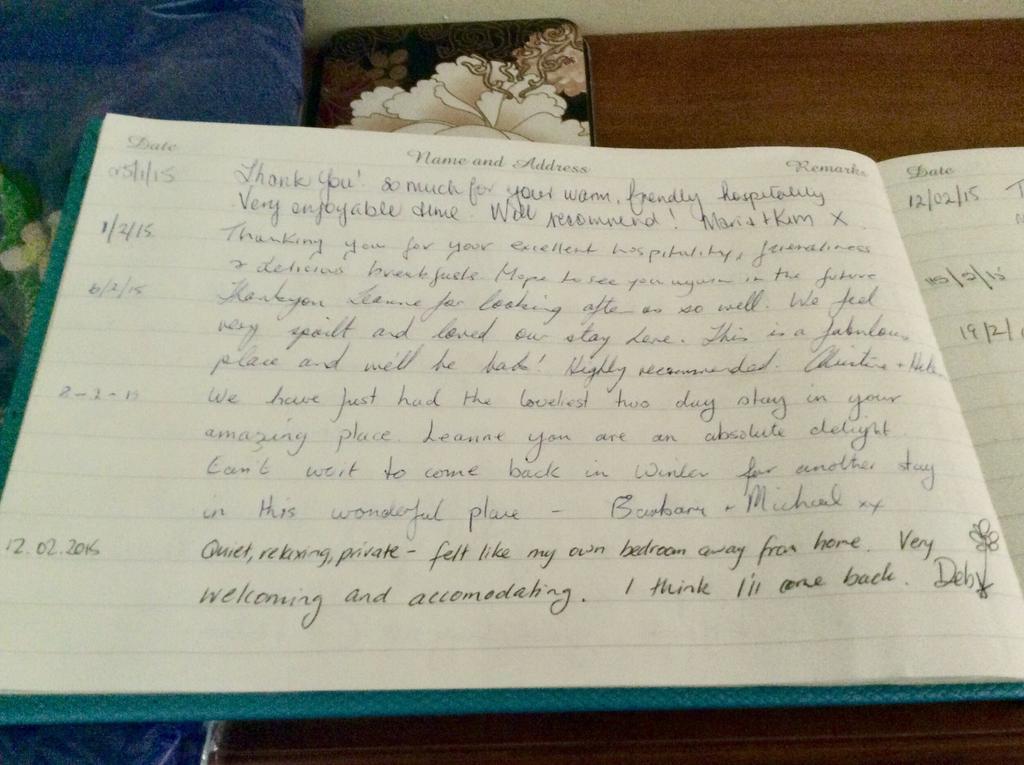 Date Name and Address Remarks
25/1/15 Thank you! so much for your warm, frendly hospitality
Very enjoyable time. Will recommend! Maria + Kim X
1/2/15 Thanking you for your excellent hospitality, friendliness
& delicious breakfasts. Hope to see you again in the future
6/2/15 Thankyou Leanne for looking after us so well. We feel
very spoilt and loved our stay here. This is a fabulous
place and we'll be back! Highly recommended. Christine + Helen
8-2-15 We have just had the loveliest two day stay in your
amazing place. Leanne you are an absolute delight.
Can't wait to come back in Winter for another stay
in this wonderful place - Barbara + Michael xx
12.02.2015 Quiet, relaxing, private - felt like my own bedroom away from home. Very
welcoming and accomodating. I think I'll come back. Deb
Date
12/02/15
15/2/15
19/2/